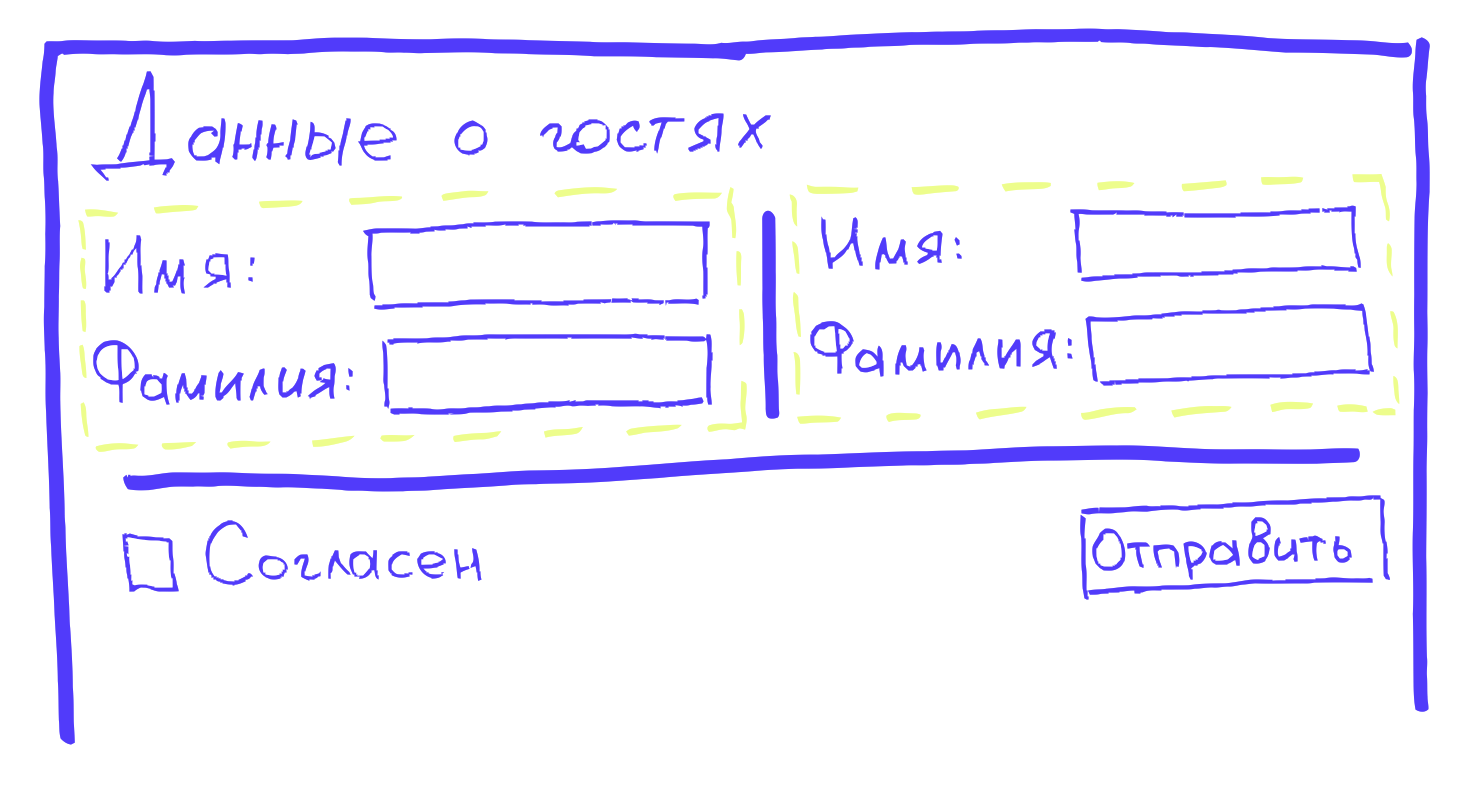 Данные о гостях
Имя:
Фамилия:
Имя:
Фамилия:
Согласен
Отправить